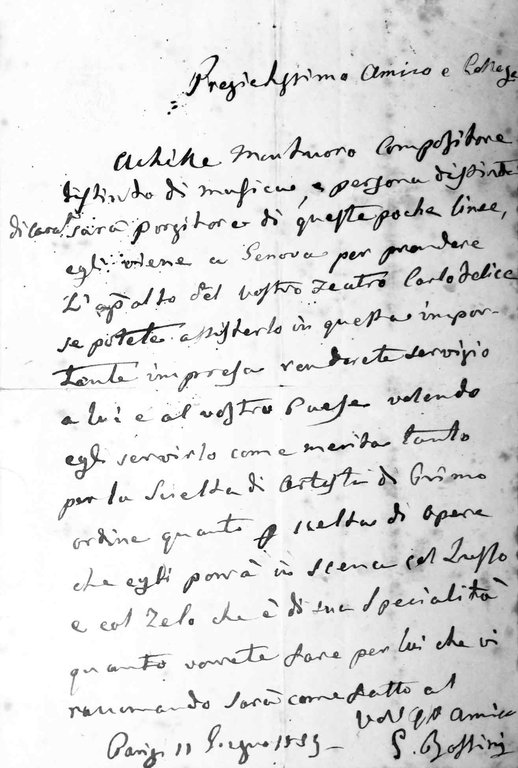 Pregiatissimo Amico e Collega
Achille Montuoro Compositore
distinto di musica, e persona distinta
di casa sarà porgitore di queste poche linee,
egli viene a Genova per prendere
L'appalto del vostro Teatro Carlo Felice
se potete assisterlo in questa impor-
tante impresa renderete servizio
a lui e al vostro Paese volendo
egli servirlo come merita tanto
per la Scelta di Artisti di Primo
ordine quanto p scelta di opere
che egli porrà in scena col Lusso
e col Zelo che è di sua Specialità
quanto vorrete fare per lui che vi
raccomando sarà come fatto al
Vostro Amico
Parigi 11 Giugno G. Rossini